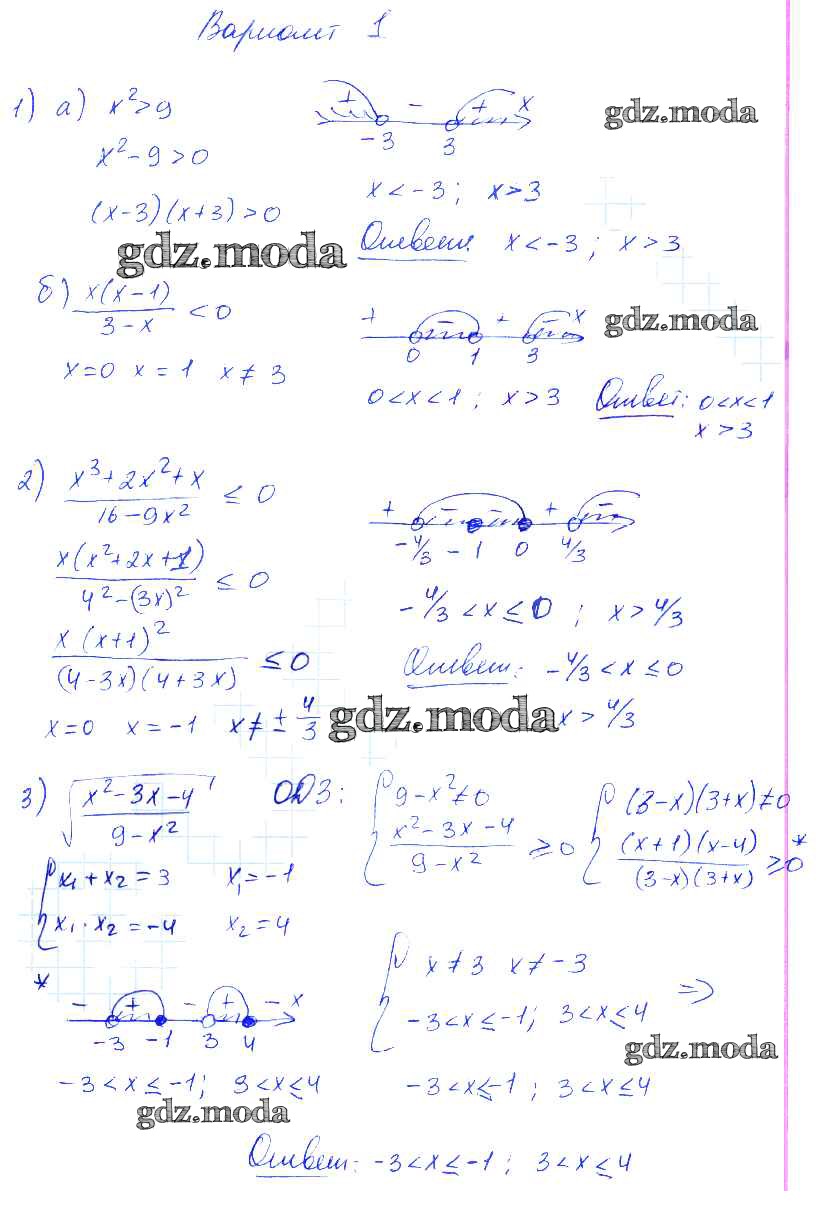 Вариант 1
1) а) x² > 9
x² - 9 > 0
(x-3)(x+3) > 0
+ - + x
-3 3
x < -3; x > 3
Ответ: x < -3; x > 3
gdz.moda
gdz.moda
б) x(x-1)/(3-x) < 0
x=0 x=1 x≠3
+ - + - x
0 1 3
0<x<1; x>3
Ответ: 0<x<1
x>3
gdz.moda
2) (x³+2x²+x)/(16-9x²) ≤ 0
x(x²+2x+1)/(4²-(3x)²) ≤ 0
x(x+1)²/((4-3x)(4+3x)) ≤ 0
x=0 x=-1 x≠±4/3
+ - - + -
-4/3 -1 0 4/3
-4/3 < x ≤ 0; x > 4/3
Ответ: -4/3 < x ≤ 0
x > 4/3
gdz.moda
3) √((x²-3x-4)/(9-x²))
ОДЗ: { 9-x²≠0
(x²-3x-4)/(9-x²) ≥ 0
{ (3-x)(3+x)≠0
(x+1)(x-4)/((3-x)(3+x)) ≥ 0 *
{ x₁+x₂=3 x₁=-1
x₁·x₂=-4 x₂=4
*
- + - + - x
-3 -1 3 4
-3<x≤-1; 3<x≤4
{ x≠3 x≠-3
-3<x≤-1; 3<x≤4 ⇒
gdz.moda
-3<x≤-1; 3<x≤4
gdz.moda
Ответ: -3<x≤-1; 3<x≤4